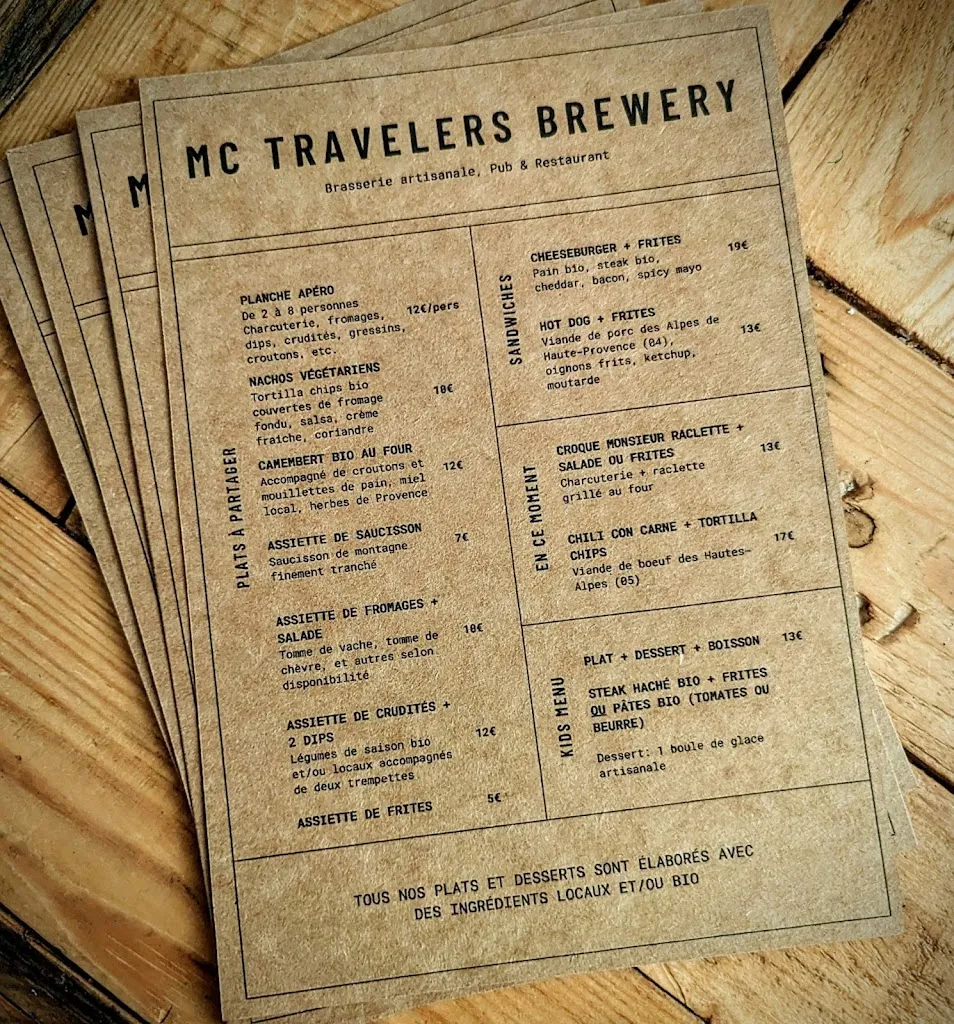 MC TRAVELERS BREWERY
Brasserie artisanale, Pub & Restaurant
PLATS À PARTAGER
PLANCHE APÉRO
De 2 à 8 personnes
Charcuterie, fromages, 12€/pers
dips, crudités, gressins,
croutons, etc.
NACHOS VÉGÉTARIENS
Tortilla chips bio
couvertes de fromage 10€
fondu, salsa, crème
fraiche, coriandre
CAMEMBERT BIO AU FOUR
Accompagné de croutons et 12€
mouillettes de pain, miel
local, herbes de Provence
ASSIETTE DE SAUCISSON
Saucisson de montagne 7€
finement tranché
ASSIETTE DE FROMAGES +
SALADE
Tomme de vache, tomme de 10€
chèvre, et autres selon
disponibilité
ASSIETTE DE CRUDITÉS +
2 DIPS
Légumes de saison bio 12€
et/ou locaux accompagnés
de deux trempettes
ASSIETTE DE FRITES 5€
SANDWICHES
CHEESEBURGER + FRITES 19€
Pain bio, steak bio,
cheddar, bacon, spicy mayo
HOT DOG + FRITES
Viande de porc des Alpes de
Haute-Provence (04), 13€
oignons frits, ketchup,
moutarde
EN CE MOMENT
CROQUE MONSIEUR RACLETTE +
SALADE OU FRITES 13€
Charcuterie + raclette
grillé au four
CHILI CON CARNE + TORTILLA
CHIPS 17€
Viande de boeuf des Hautes-
Alpes (05)
KIDS MENU
PLAT + DESSERT + BOISSON 13€
STEAK HACHÉ BIO + FRITES
OU PÂTES BIO (TOMATES OU
BEURRE)
Dessert: 1 boule de glace
artisanale
TOUS NOS PLATS ET DESSERTS SONT ÉLABORÉS AVEC
DES INGRÉDIENTS LOCAUX ET/OU BIO
M
M